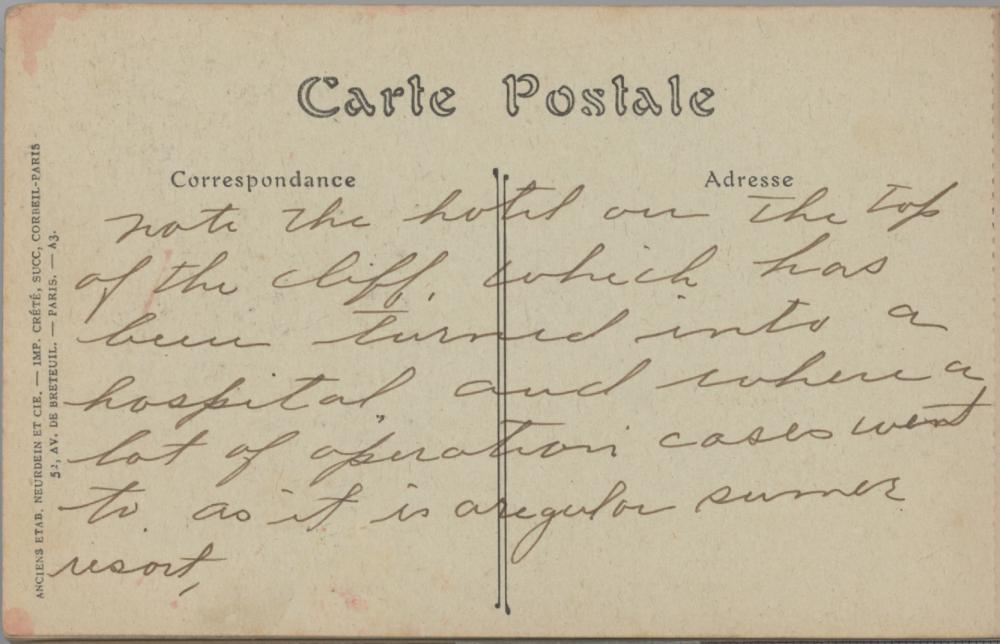 Carte Postale
Correspondance
Adresse
note the hotel on the top
of the cliff, which has
been turned into a
hospital, and where a
lot of operation cases went
to. as it is a regular summer
resort,
ANCIENS ETAB. NEURDEIN ET CIE. — IMP. CRÉTÉ, SUCC, CORBEIL-PARIS
52, AV. DE BRETEUIL. — PARIS. — A3.